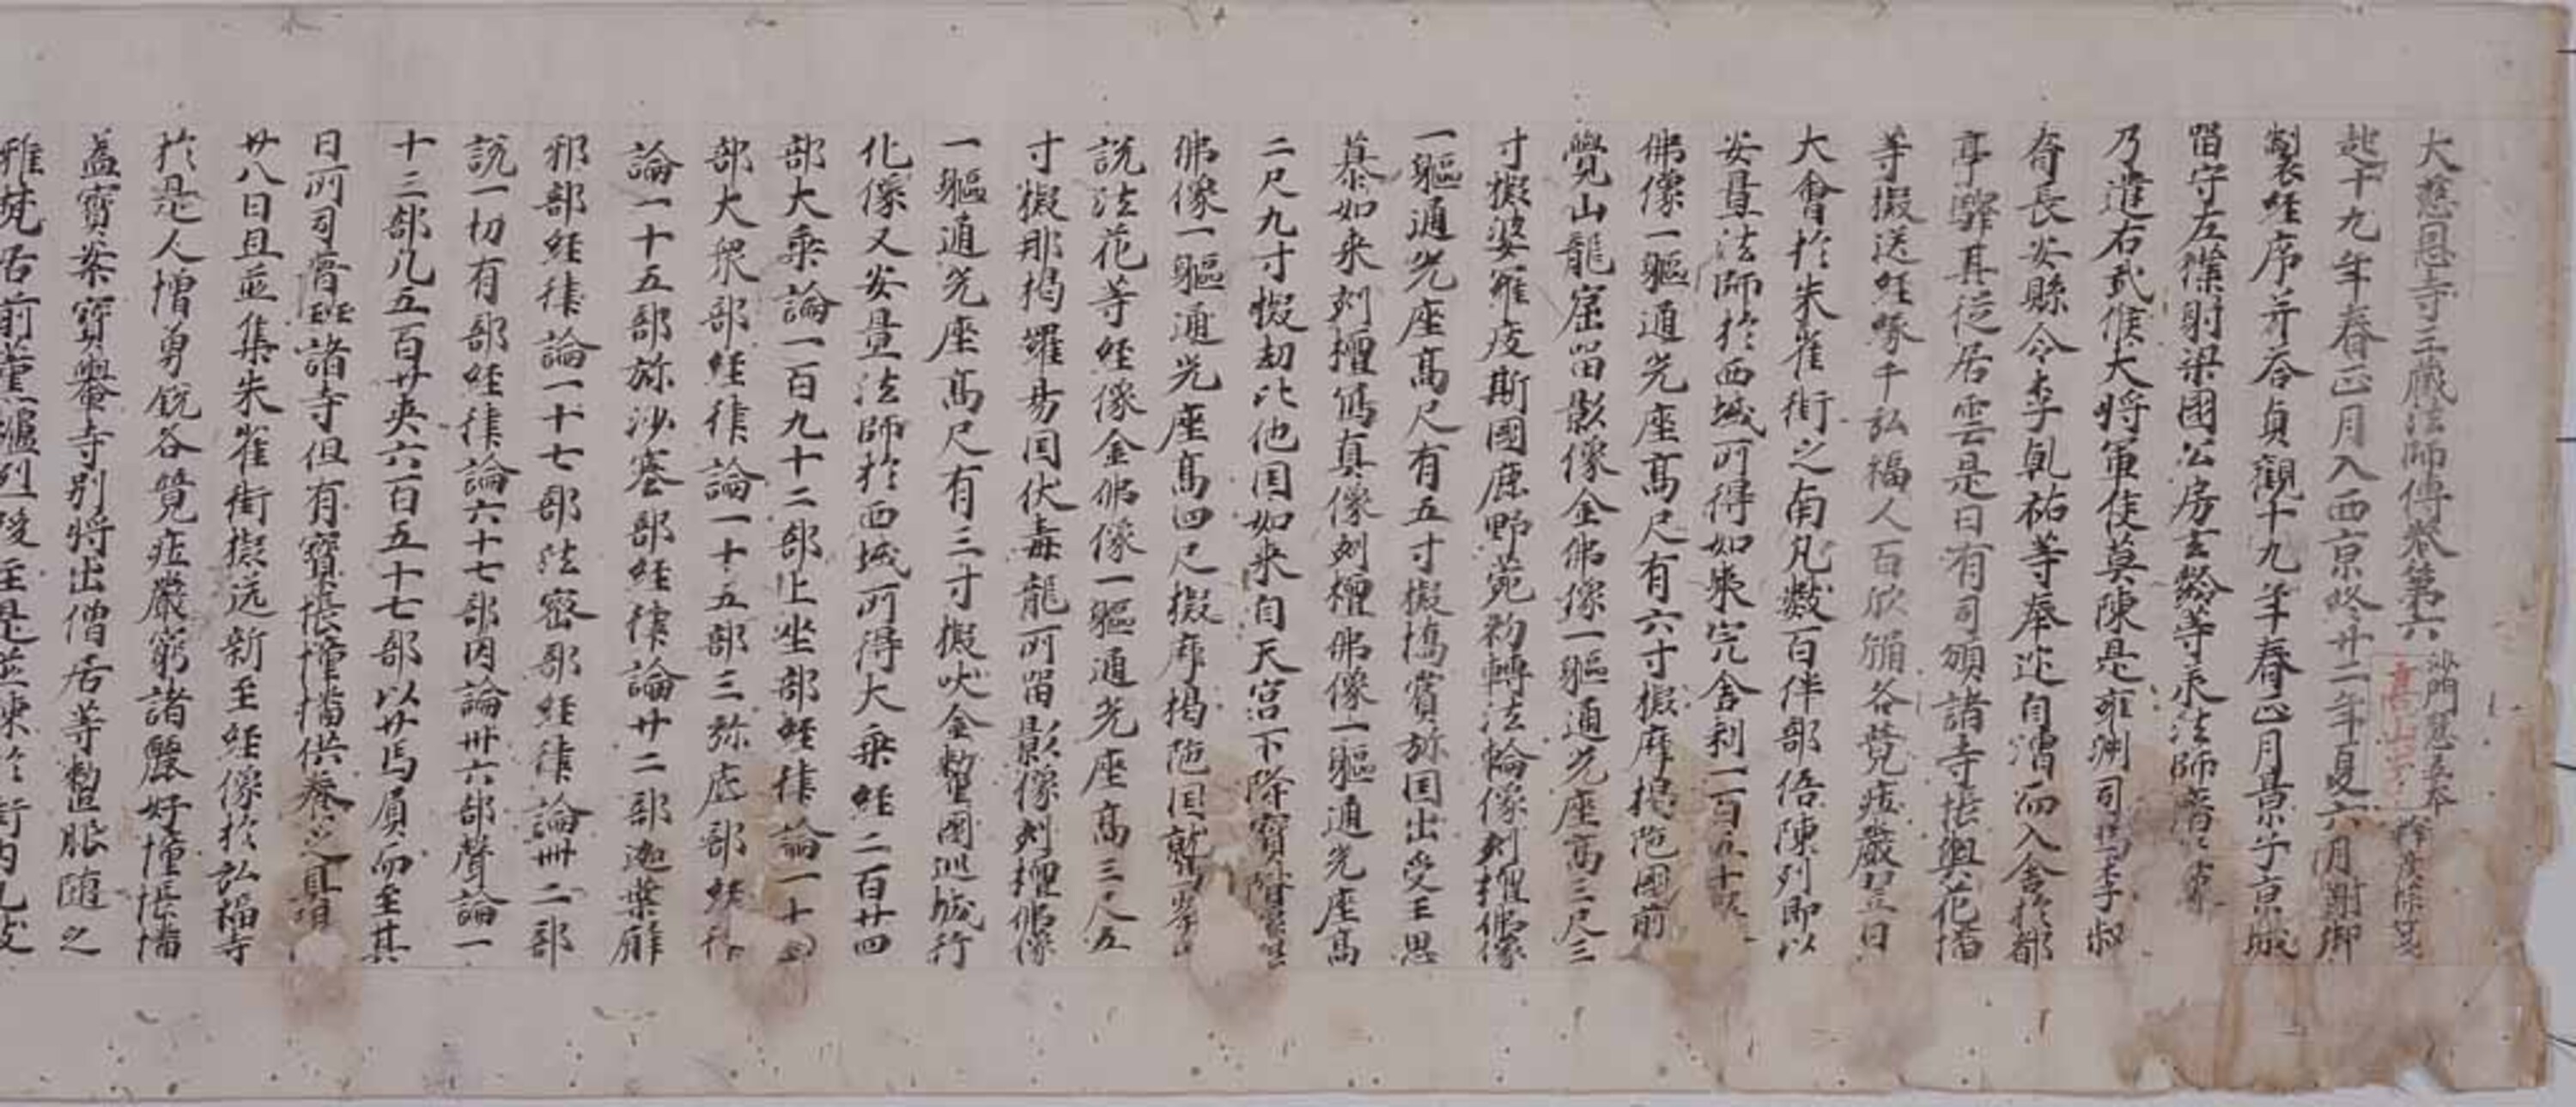 大慈恩寺三藏法師傳卷第六 沙門慧立本 釋彦悰箋
起十九年春正月入西京終廿二年夏六月謝御
製經序并荅貞觀十九年春正月景子京城
留守左僕射梁國公房玄齡等承法師齎
乃遣右武侯大將軍侯莫陳是雍州司馬李叔
脊長安縣令李乹祐等奉迎自漕而入舍於都
亭驛其從居雲是日有司頒諸寺帳輿花幡
等擬送經像于弘福人百欣踊各竸疰嚴翌日
大會於朱雀街之南凡數百件部伍陳列即以
安置法師於西域所得如來完舍利一百五十
佛像一軀通光座高尺有六寸擬摩揭陁國前
覺山龍窟留影像金佛像一軀通光座高三尺三
寸擬婆羅痆斯國鹿野菀初轉法輪像刻檀佛像
一軀通光座高尺有五寸擬憍賞弥国出受王思
慕如來刻檀寫真像刻檀佛像一軀通光座高
二尺九寸擬劫比他国如來自天宮下降寶
佛像一軀通光座高四尺擬摩揭陁国鷲峯山
說法花等經像金佛像一軀通光座高三尺五
寸擬那揭羅曷国伏毒龍所留影像刻檀佛像
一軀通光座高尺有三寸擬吠舍釐國巡城行
化像又安置法師於西域所得大乘經二百廿四
部大乘論一百九十二部上坐部經律論一十四
部大衆部經律論一十五部三弥底部經律
論一十五部弥沙塞部經律論廿二部迦葉臂
邪部經律論一十七部法密部經律論卌二部
說一切有部經律論六十七部因論卅六部聲論一
十三部凡五百廿夾六百五十七部以廿馬負而至其
日所司普班諸寺但有寶帳幢幡供養之具
廿八日且並集朱雀街擬送新至經像於弘福寺
於是人憎勇銳各竸疰嚴窮諸麗好幢帳幡
盖寶案寶轝寺別將出僧居等整服随之
雅梵居前薰爐列後至是並陳於街内凡數